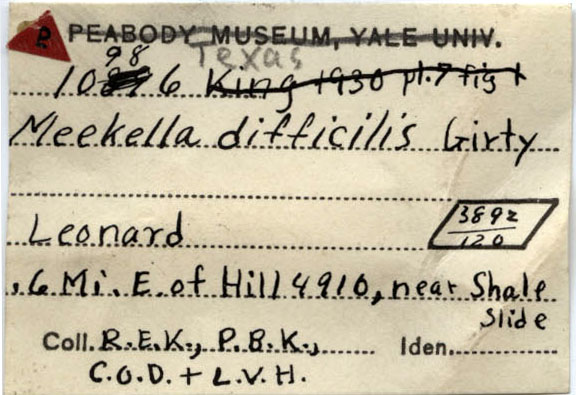 P. PEABODY MUSEUM, YALE UNIV.
Texas
98
10 6 King 1930 pl.7 fig 1
Meekella difficilis Girty
Leonard
3892
120
.6 Mi. E. of Hill 4910, near Shale
Slide
Coll. R.E.K., P.B.K., Iden.
C.O.D. + L.V.H.